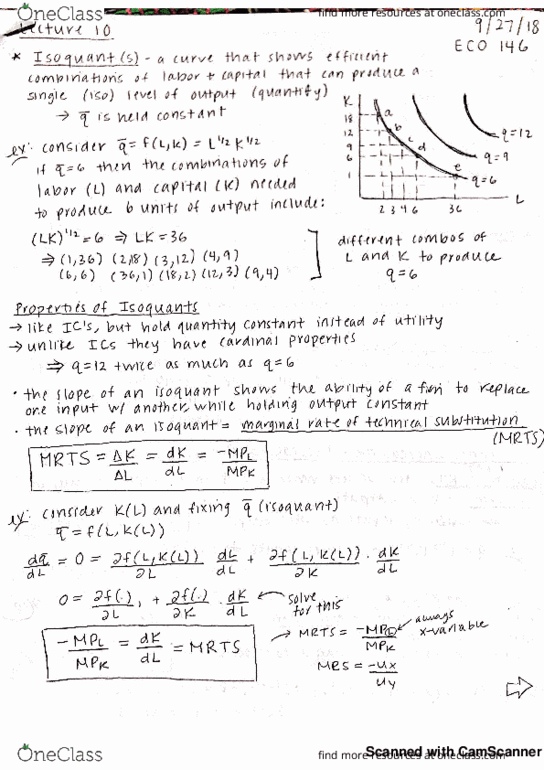 OneClass
find more resources at oneclass.com
find more resources at oneclass.com
Lecture 10
9/27/18
ECO 146
* Isoquant(s) - a curve that shows efficient
combinations of labor + capital that can produce a
single (iso) level of output (quantity)
→ q̅ is held constant
ex: consider q̅ = f(L,K) = L^1/2 K^1/2
if q̅=6 then the combinations of
labor (L) and capital (K) needed
to produce 6 units of output include:
(LK)^1/2 = 6 ⇒ LK = 36
⇒ (1,36) (2,18) (3,12) (4,9)
(6,6) (36,1) (18,2) (12,3) (9,4)
K
18
12
9
6
1
a
b
c
d
e
q=12
q=9
q=6
2 3 4 6 36
L
different combos of
L and K to produce
q=6
Properties of Isoquants
→ like IC's, but hold quantity constant instead of utility
→ unlike ICs they have cardinal properties
⇒ q=12 twice as much as q=6
• the slope of an isoquant shows the ability of a firm to replace
one input w/ another while holding output constant
• the slope of an isoquant = marginal rate of technical substitution
(MRTS)
MRTS = ΔK/ΔL = dK/dL = -MPL/MPK
ex: consider K(L) and fixing q̅ (isoquant)
q̅ = f(L, K(L))
dq̅/dL = 0 = ∂f(L,K(L))/∂L dL/dL + ∂f(L,K(L))/∂K · dK/dL
0 = ∂f(.)/∂L, + ∂f(.)/∂K · dK/dL
solve
for this
-MPL/MPK = dK/dL = MRTS
→ MRTS = -MPL/MPK
always
x-variable
MRS = -Ux/Uy
OneClass
find more resources at oneclass.com
Scanned with CamScanner